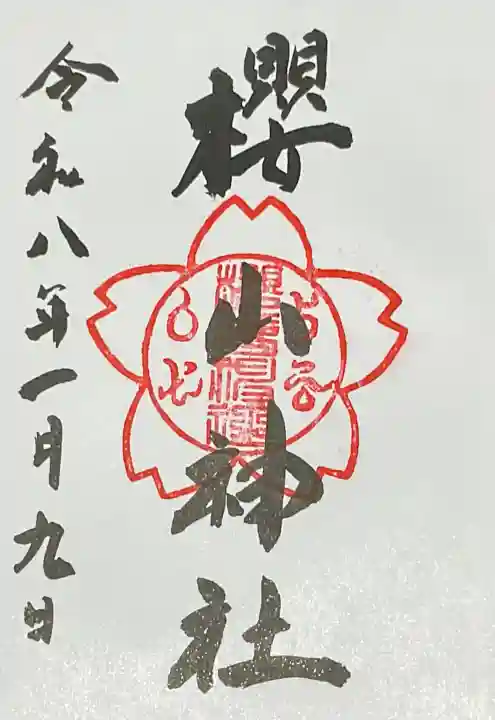 櫻山神社
令和八年一月九日